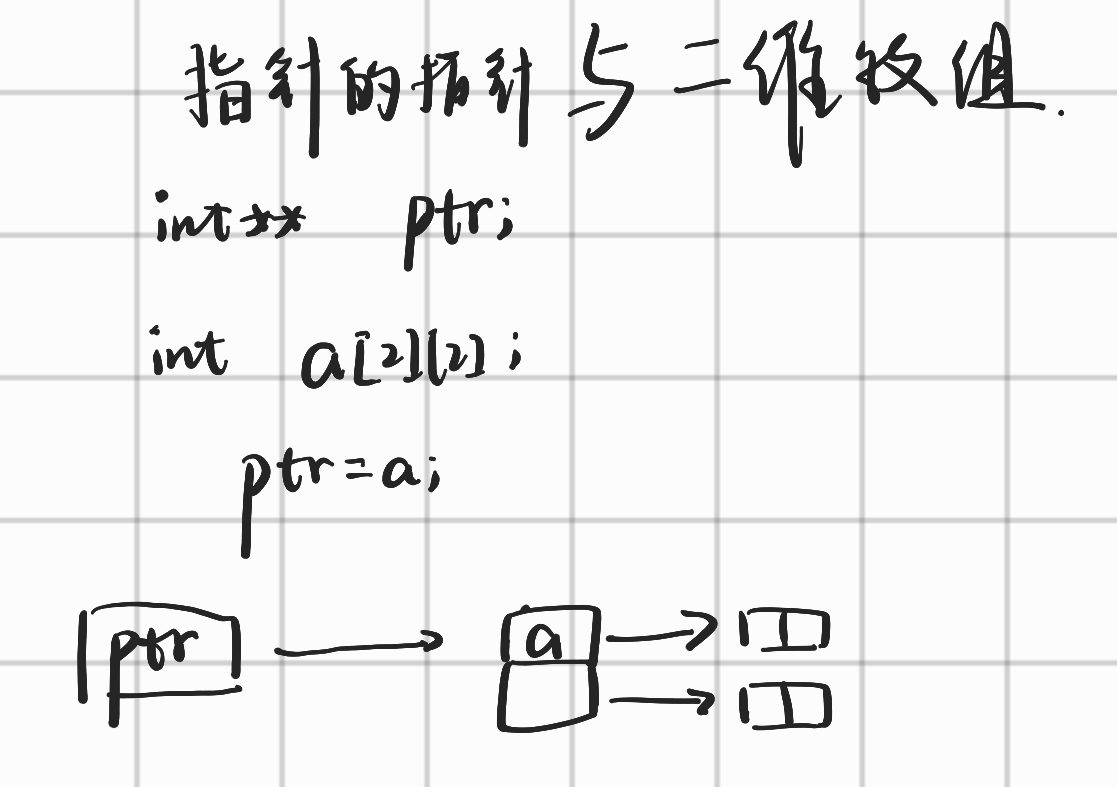 指针的指针与二维数组.
int** ptr;
int a[2][2];
ptr=a;
ptr
a